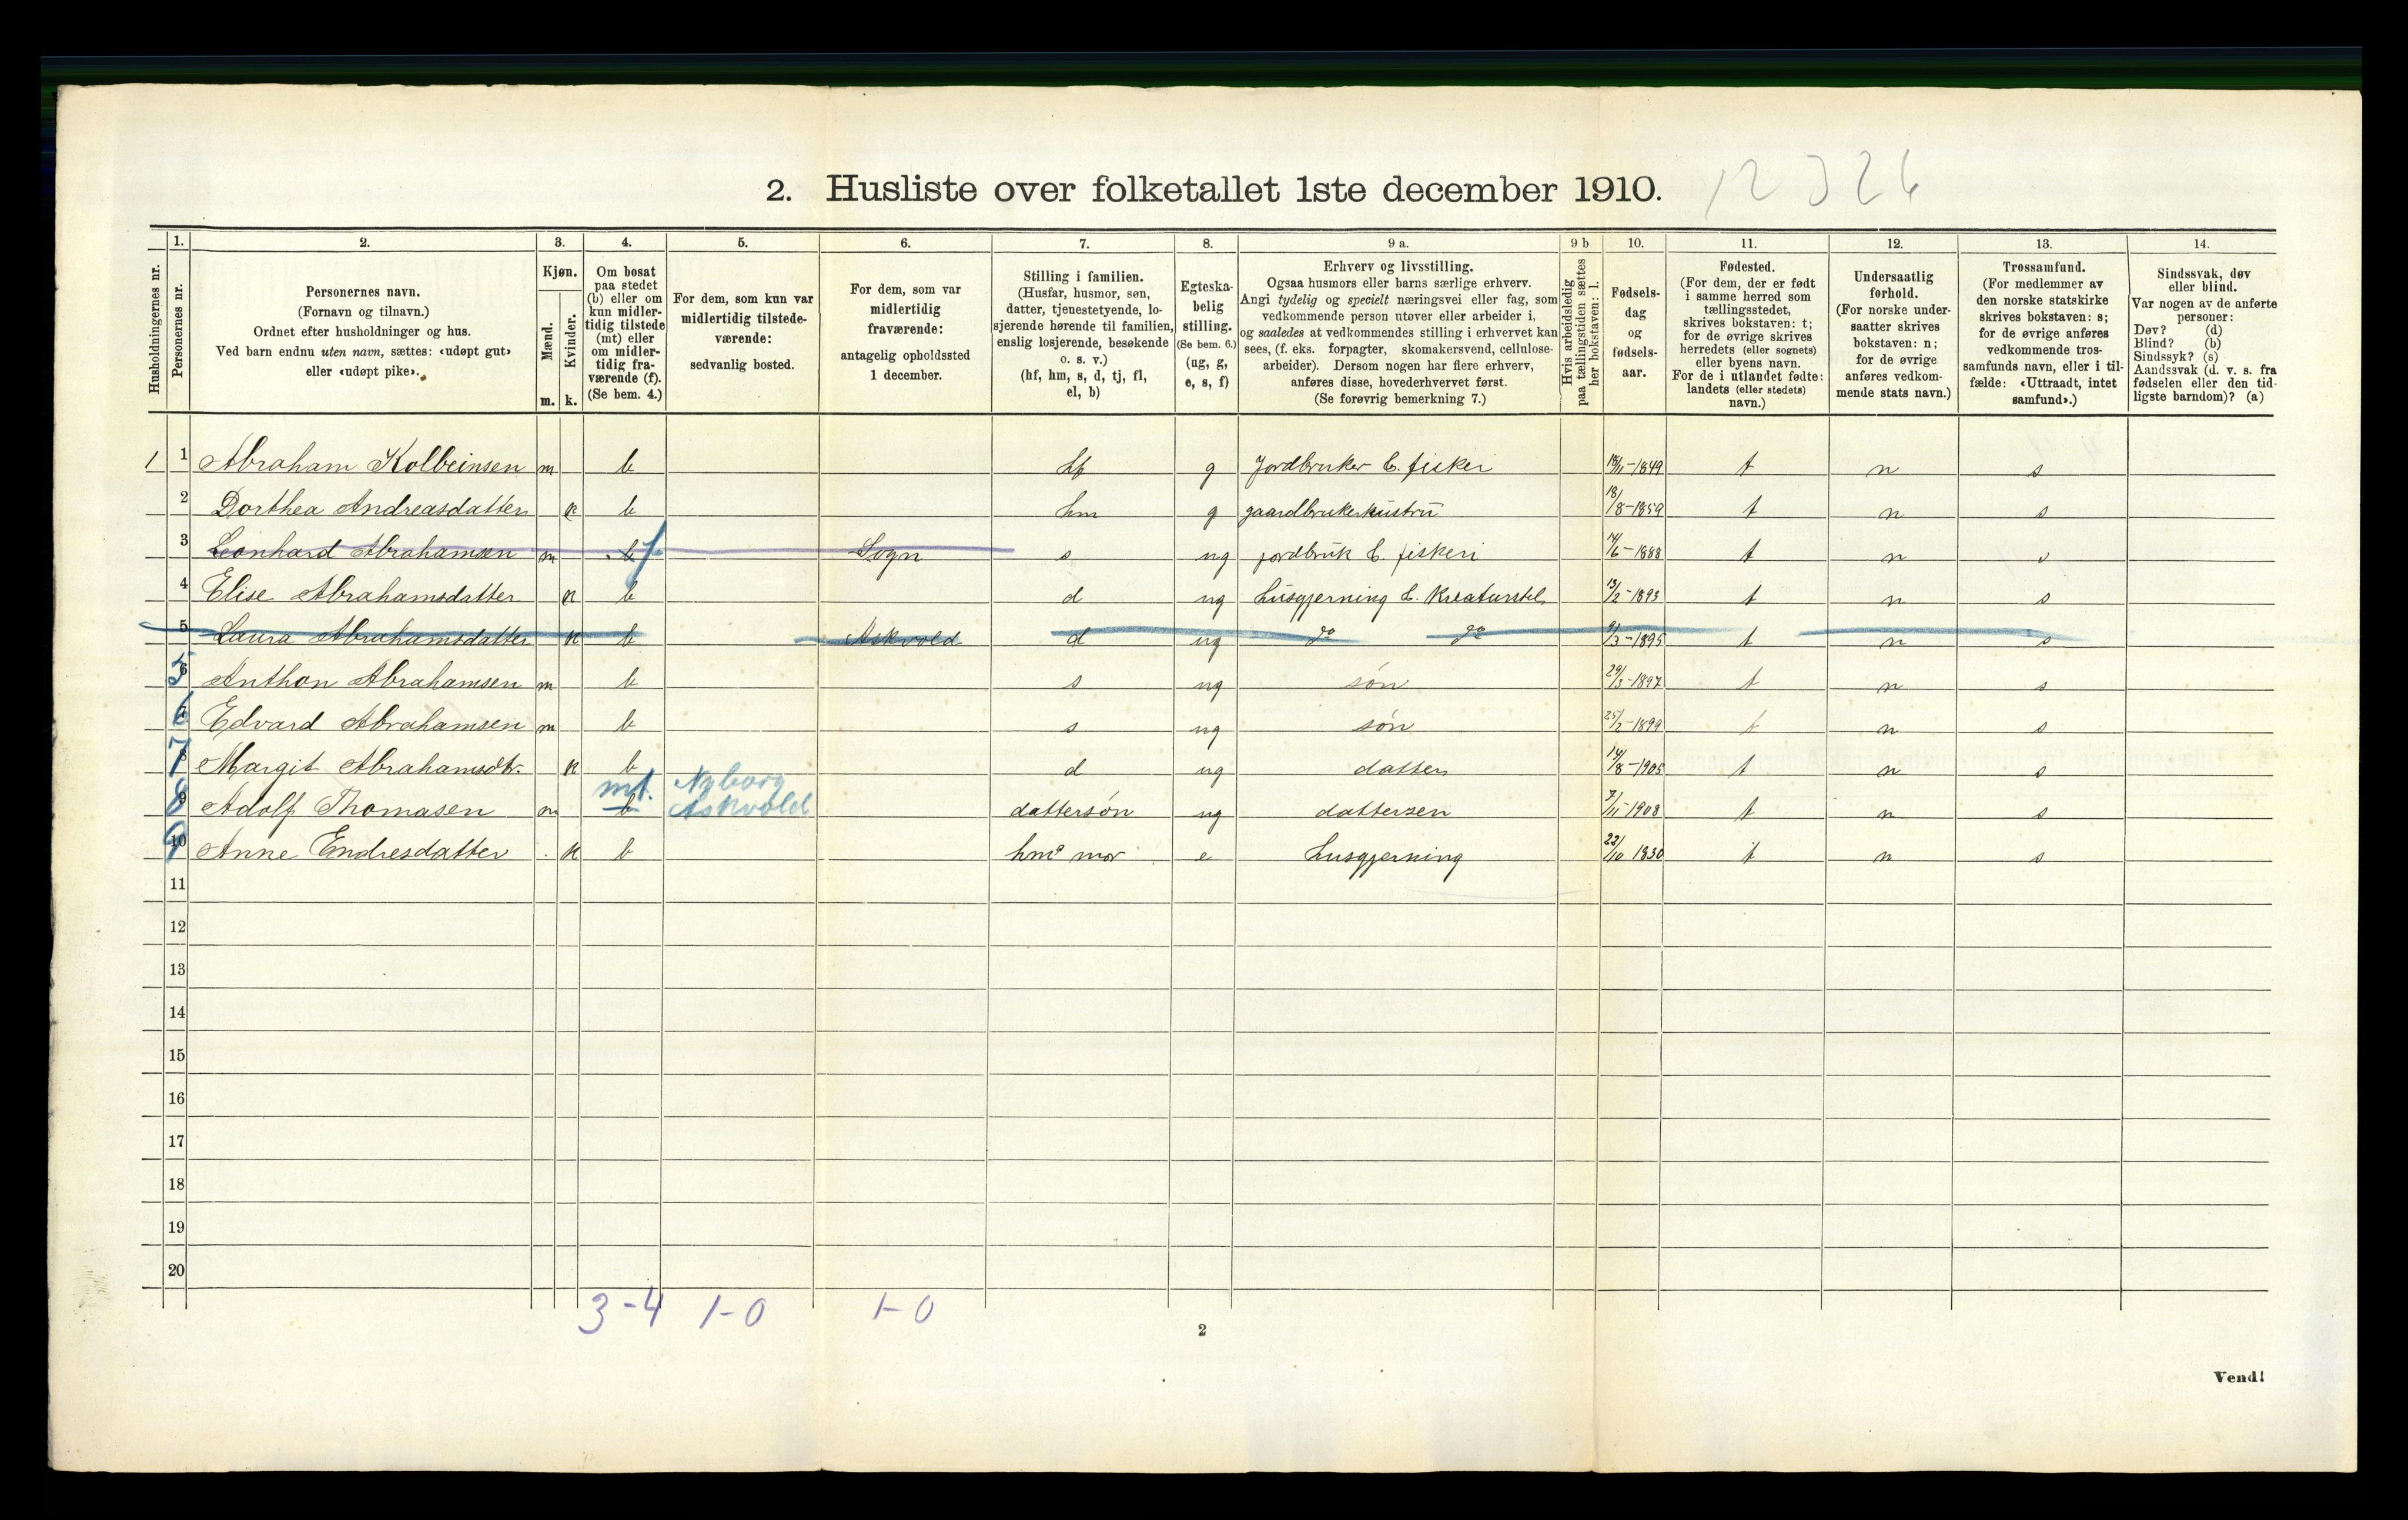 2. Husliste over folketallet 1ste december 1910. 12 3 26
Husholdningernes nr.
1. Personernes nr.
2. Personernes navn. (Fornavn og tilnavn.) Ordnet efter husholdninger og hus. Ved barn endnu uten navn, sættes: «udøpt gut» eller «udøpt pike».
3. Kjøn. Mænd. m. Kvinder. k.
4. Om bosat paa stedet (b) eller om kun midler-tidig tilstede (mt) eller om midler-tidig fra-værende (f). (Se bem. 4.)
5. For dem, som kun var midlertidig tilstede-værende: sedvanlig bosted.
6. For dem, som var midlertidig fraværende: antagelig opholdssted 1 december.
7. Stilling i familien. (Husfar, husmor, søn, datter, tjenestetyende, lo-sjerende hørende til familien, enslig losjerende, besøkende o. s. v.) (hf, hm, s, d, tj, fl, el, b)
8. Egteska-belig stilling. (Se bem. 6.) (ug, g, e, s, f)
9 a. Erhverv og livsstilling. Ogsaa husmors eller barns særlige erhverv. Angi tydelig og specielt næringsvei eller fag, som vedkommende person utøver eller arbeider i, og saaledes at vedkommendes stilling i erhvervet kan sees, (f. eks. forpagter, skomakersvend, cellulose-arbeider). Dersom nogen har flere erhverv, anføres disse, hovederhvervet først. (Se forøvrig bemerkning 7.)
9 b Hvis arbeidsledig paa tællingstiden sættes her bokstaven: l.
10. Fødsels-dag og fødsels-aar.
11. Fødested. (For dem, der er født i samme herred som tællingsstedet, skrives bokstaven: t; for de øvrige skrives herredets (eller sognets) eller byens navn. For de i utlandet fødte: landets (eller stedets) navn.)
12. Undersaatlig forhold. (For norske under-saatter skrives bokstaven: n; for de øvrige anføres vedkom-mende stats navn.)
13. Trossamfund. (For medlemmer av den norske statskirke skrives bokstaven: s; for de øvrige anføres vedkommende tros-samfunds navn, eller i til-fælde: «Uttraadt, intet samfund».)
14. Sindssvak, døv eller blind. Var nogen av de anførte personer: Døv? (d) Blind? (b) Sindssyk? (s) Aandssvak (d. v. s. fra fødselen eller den tid-ligste barndom)? (a)
1 1 Abraham Kolbeinsen m b hf g Jordbruker & fisker 18/11-1849 t n s
2 Dorthea Andreasdatter k b hm g gaardbrukerhustru 18/8-1859 t n s
3 Leonhard Abrahamsen m b f Sogn s ug jordbruk & fiskeri 14/6-1888 t n s
4 Elise Abrahamsdatter k b d ug husgjerning & Kreaturstel 13/2-1893 t n s
5 Laura Abrahamsdatter k b Askvold d ug do do 9/3-1895 t n s
5 6 Anthon Abrahamsen m b s ug søn 29/3-1897 t n s
6 7 Edvard Abrahamsen m b s ug søn 25/2-1899 t n s
7 8 Margit Abrahamsdtr. k b d ug datter 14/8-1905 t n s
8 9 Adolf Thomasen m b mt. Nyborg Askvold dattersøn ug dattersen 7/11-1908 t n s
9 10 Anne Endresdatter k b hms mor e husgjerning 23/10 1830 t n s
11
12
13
14
15
16
17
18
19
20
3-4 1-0 1-0
2
Vend!